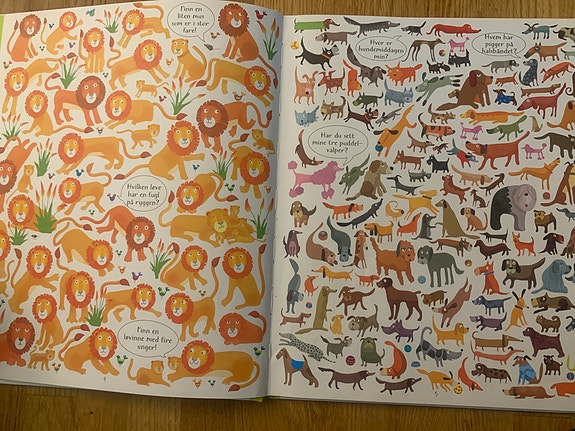 Finn en
liten mus
som er i stor
fare!
Hvilken løve
har en fugl
på ryggen?
Finn en
løvinne med fire
unger!
Hvor er
hundemiddagen
min?
Hvem har
pigger på
halsbåndet?
Har du sett
mine tre puddel-
valper?
4
5